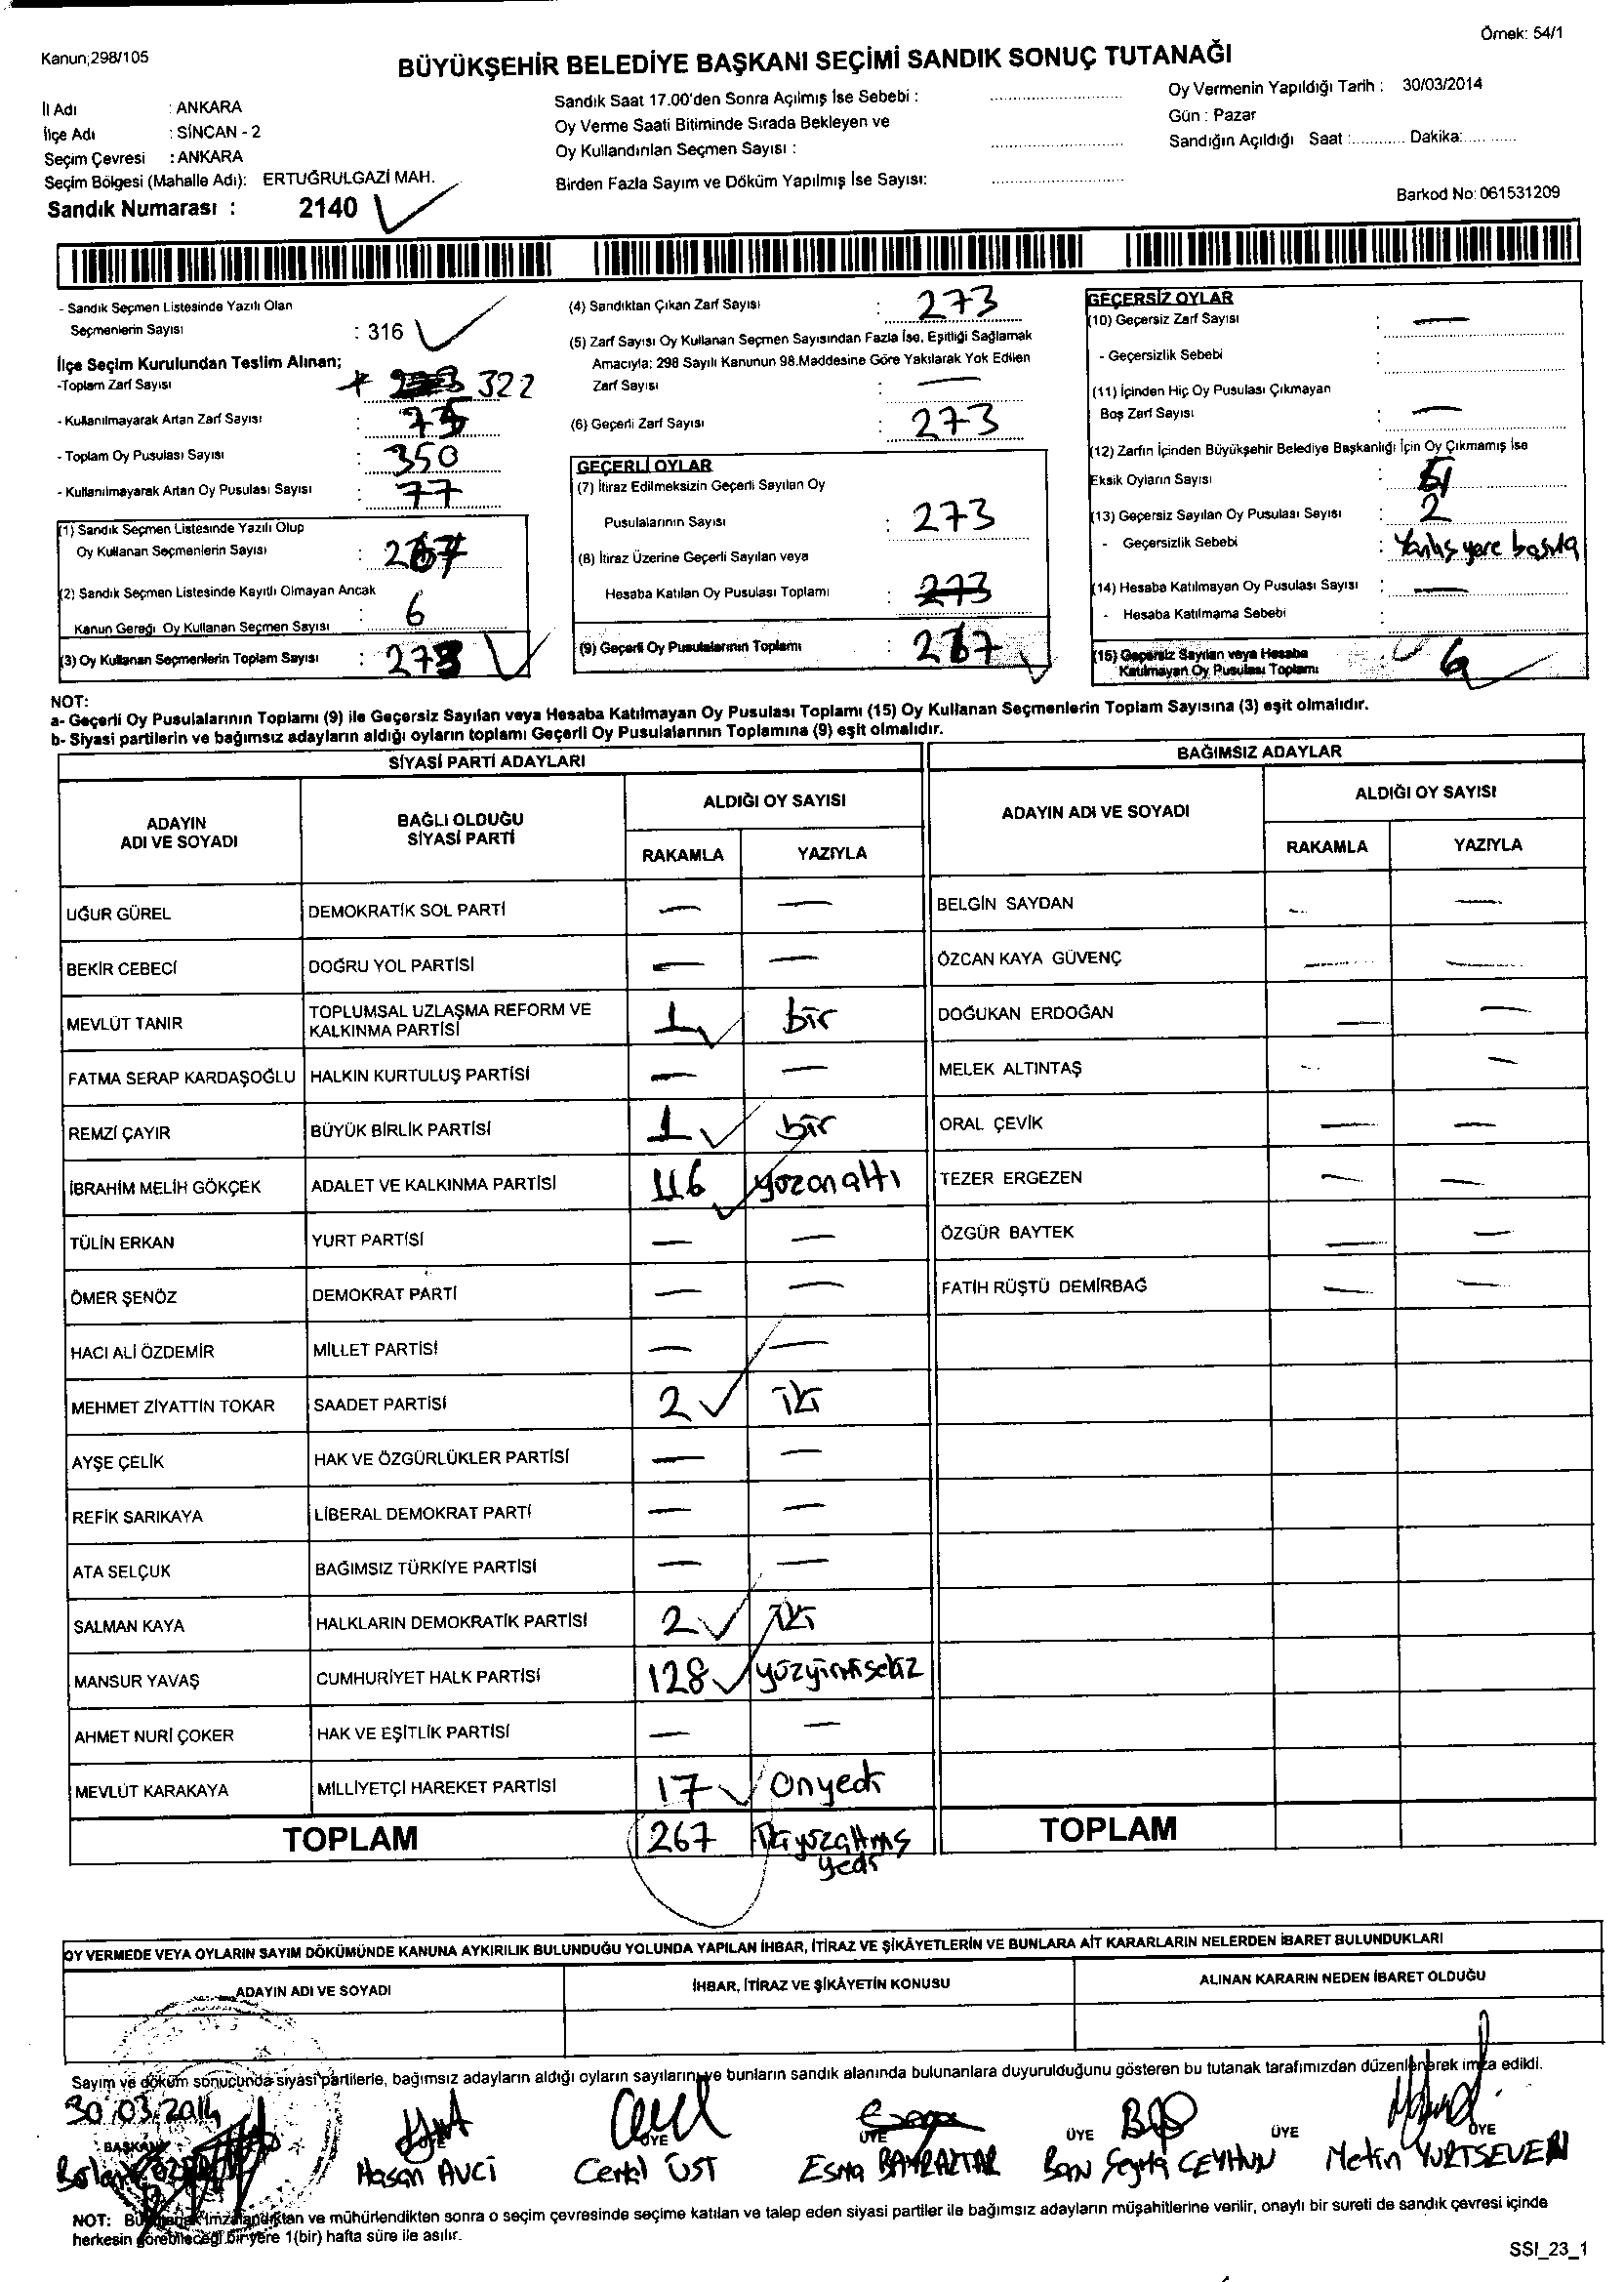 Örnek: 54/1
Kanun;298/105
BÜYÜKŞEHİR BELEDİYE BAŞKANI SEÇİMİ SANDIK SONUÇ TUTANAĞI
İl Adı : ANKARA
İlçe Adı : SİNCAN - 2
Seçim Çevresi : ANKARA
Seçim Bölgesi (Mahalle Adı): ERTUĞRULGAZİ MAH.
Sandık Numarası : 2140
Sandık Saat 17.00'den Sonra Açılmış İse Sebebi :
Oy Verme Saati Bitiminde Sırada Bekleyen ve
Oy Kullandırılan Seçmen Sayısı :
Birden Fazla Sayım ve Döküm Yapılmış İse Sayısı:
Oy Vermenin Yapıldığı Tarih : 30/03/2014
Gün : Pazar
Sandığın Açıldığı Saat :............ Dakika:............
Barkod No: 061531209
- Sandık Seçmen Listesinde Yazılı Olan
Seçmenlerin Sayısı : 316
İlçe Seçim Kurulundan Teslim Alınan;
-Toplam Zarf Sayısı 322
- Kullanılmayarak Artan Zarf Sayısı :
- Toplam Oy Pusulası Sayısı : 350
- Kullanılmayarak Artan Oy Pusulası Sayısı : 77
(1) Sandık Seçmen Listesinde Yazılı Olup
Oy Kullanan Seçmenlerin Sayısı : 267
(2) Sandık Seçmen Listesinde Kayıtlı Olmayan Ancak
Kanun Gereği Oy Kullanan Seçmen Sayısı : 6
(3) Oy Kullanan Seçmenlerin Toplam Sayısı : 273
(4) Sandıktan Çıkan Zarf Sayısı : 273
(5) Zarf Sayısı Oy Kullanan Seçmen Sayısından Fazla İse, Eşitliği Sağlamak
Amacıyla; 298 Sayılı Kanunun 98.Maddesine Göre Yakılarak Yok Edilen
Zarf Sayısı : —
(6) Geçerli Zarf Sayısı : 273
GEÇERLİ OYLAR
(7) İtiraz Edilmeksizin Geçerli Sayılan Oy
Pusulalarının Sayısı : 273
(8) İtiraz Üzerine Geçerli Sayılan veya
Hesaba Katılan Oy Pusulası Toplamı : 273
(9) Geçerli Oy Pusulalarının Toplamı : 267
GEÇERSİZ OYLAR
(10) Geçersiz Zarf Sayısı : —
- Geçersizlik Sebebi :
(11) İçinden Hiç Oy Pusulası Çıkmayan
Boş Zarf Sayısı : —
(12) Zarfın İçinden Büyükşehir Belediye Başkanlığı İçin Oy Çıkmamış İse
Eksik Oyların Sayısı :
(13) Geçersiz Sayılan Oy Pusulası Sayısı : 2
- Geçersizlik Sebebi : Yanlış yere
(14) Hesaba Katılmayan Oy Pusulası Sayısı : —
- Hesaba Katılmama Sebebi :
(15) Geçersiz Sayılan veya Hesaba
Katılmayan Oy Pusulası Toplamı : 6
NOT:
a- Geçerli Oy Pusulalarının Toplamı (9) ile Geçersiz Sayılan veya Hesaba Katılmayan Oy Pusulası Toplamı (15) Oy Kullanan Seçmenlerin Toplam Sayısına (3) eşit olmalıdır.
b- Siyasi partilerin ve bağımsız adayların aldığı oyların toplamı Geçerli Oy Pusulalarının Toplamına (9) eşit olmalıdır.
SİYASİ PARTİ ADAYLARI
ADAYIN ADI VE SOYADI BAĞLI OLDUĞU SİYASİ PARTİ ALDIĞI OY SAYISI
RAKAMLA YAZIYLA
UĞUR GÜREL DEMOKRATİK SOL PARTİ — —
BEKİR CEBECİ DOĞRU YOL PARTİSİ — —
MEVLÜT TANIR TOPLUMSAL UZLAŞMA REFORM VE KALKINMA PARTİSİ 1 bir
FATMA SERAP KARDAŞOĞLU HALKIN KURTULUŞ PARTİSİ — —
REMZİ ÇAYIR BÜYÜK BİRLİK PARTİSİ 1 bir
İBRAHİM MELİH GÖKÇEK ADALET VE KALKINMA PARTİSİ 116 yüzonaltı
TÜLİN ERKAN YURT PARTİSİ — —
ÖMER ŞENÖZ DEMOKRAT PARTİ — —
HACI ALİ ÖZDEMİR MİLLET PARTİSİ — —
MEHMET ZİYATTİN TOKAR SAADET PARTİSİ 2 iki
AYŞE ÇELİK HAK VE ÖZGÜRLÜKLER PARTİSİ — —
REFİK SARIKAYA LİBERAL DEMOKRAT PARTİ — —
ATA SELÇUK BAĞIMSIZ TÜRKİYE PARTİSİ — —
SALMAN KAYA HALKLARIN DEMOKRATİK PARTİSİ 2 iki
MANSUR YAVAŞ CUMHURİYET HALK PARTİSİ 128 yüzyirmisekiz
AHMET NURİ ÇOKER HAK VE EŞİTLİK PARTİSİ — —
MEVLÜT KARAKAYA MİLLİYETÇİ HAREKET PARTİSİ 17 Onyedi
TOPLAM 267 İkiyüzaltmış yedi
BAĞIMSIZ ADAYLAR
ADAYIN ADI VE SOYADI ALDIĞI OY SAYISI
RAKAMLA YAZIYLA
BELGİN SAYDAN — —
ÖZCAN KAYA GÜVENÇ — —
DOĞUKAN ERDOĞAN — —
MELEK ALTINTAŞ — —
ORAL ÇEVİK — —
TEZER ERGEZEN — —
ÖZGÜR BAYTEK — —
FATİH RÜŞTÜ DEMİRBAĞ — —
TOPLAM
OY VERMEDE VEYA OYLARIN SAYIM DÖKÜMÜNDE KANUNA AYKIRILIK BULUNDUĞU YOLUNDA YAPILAN İHBAR, İTİRAZ VE ŞİKÂYETLERİN VE BUNLARA AİT KARARLARIN NELERDEN İBARET BULUNDUKLARI
ADAYIN ADI VE SOYADI İHBAR, İTİRAZ VE ŞİKÂYETİN KONUSU ALINAN KARARIN NEDEN İBARET OLDUĞU
Sayım ve döküm sonucunda siyasi partilerle, bağımsız adayların aldığı oyların sayılarını ve bunların sandık alanında bulunanlara duyurulduğunu gösteren bu tutanak tarafımızdan düzenlenerek imza edildi.
30.03.2014
BAŞKAN ÜYE ÜYE ÜYE ÜYE ÜYE ÜYE
Hasan AVCI ÜST Esma BAYRAKTAR CEYHUN Metin YURTSEVEN
NOT: Bu tutanak imzalandıktan ve mühürlendikten sonra o seçim çevresinde seçime katılan ve talep eden siyasi partiler ile bağımsız adayların müşahitlerine verilir, onaylı bir sureti de sandık çevresi içinde
herkesin görebileceği bir yere 1(bir) hafta süre ile asılır.
SSI_23_1